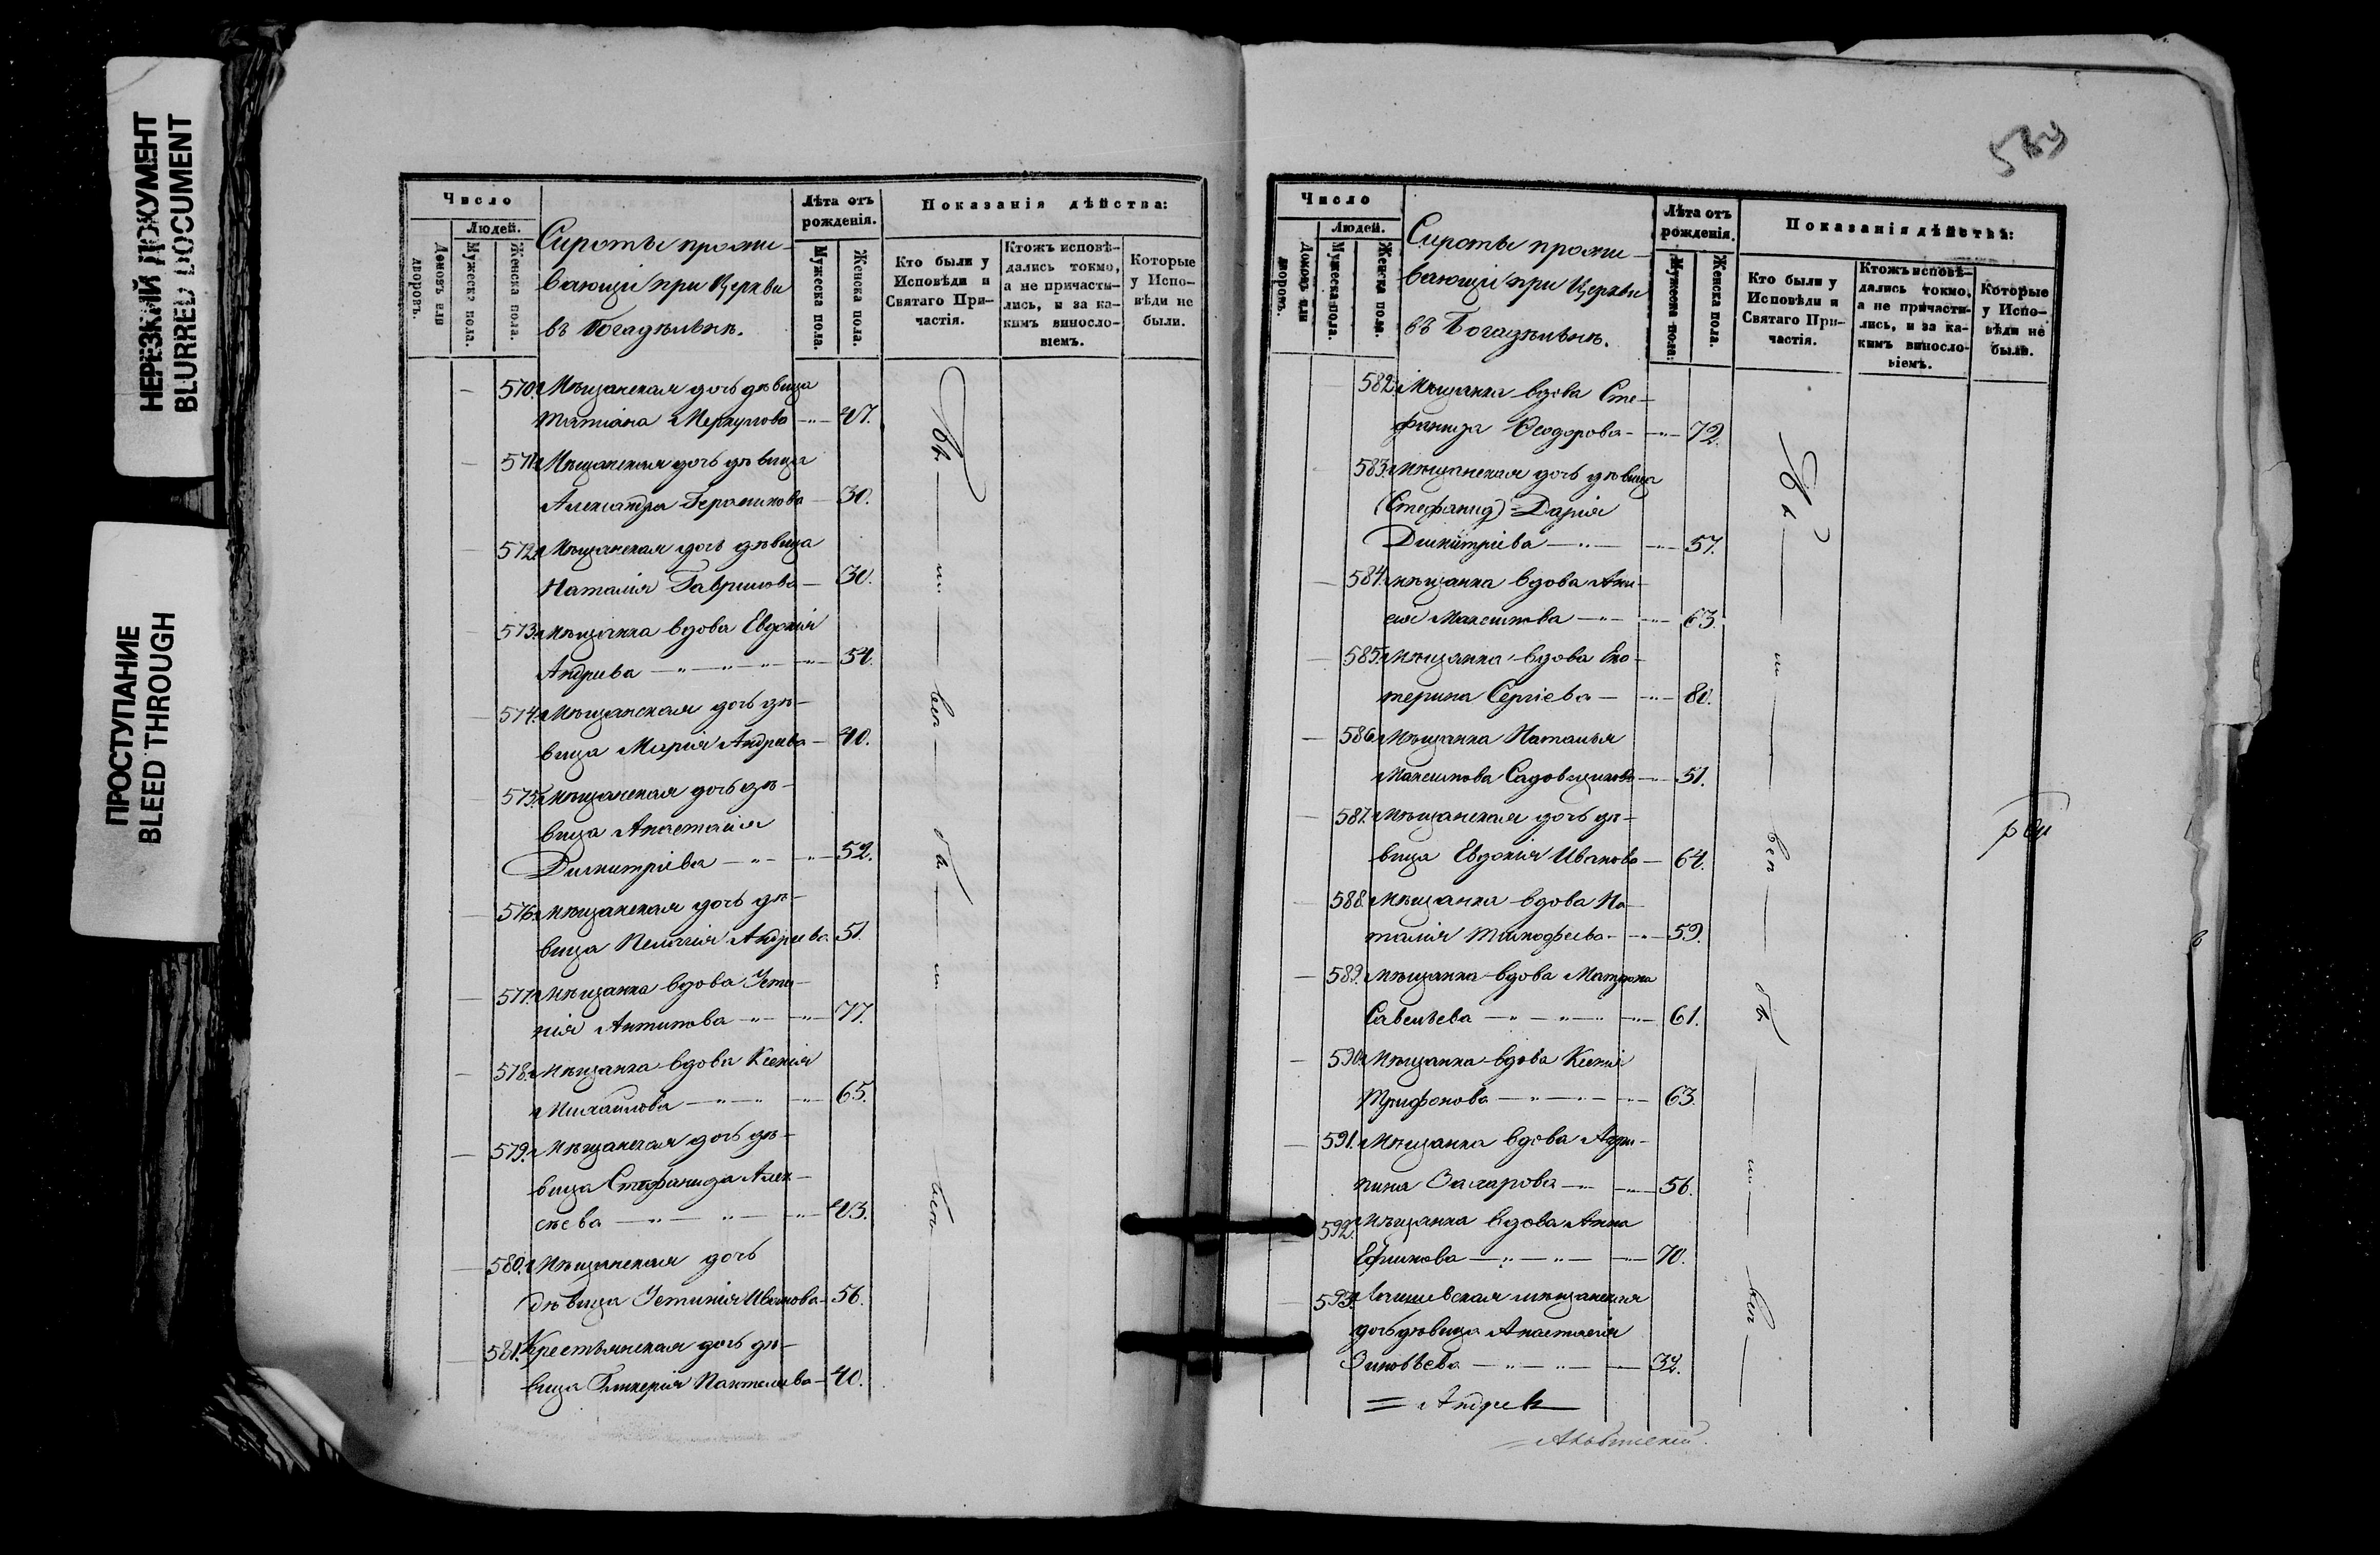 НЕРЕЗКИЙ ДОКУМЕНТ
BLURRED DOCUMENT
ПРОСТУПАНИЕ
BLEED THROUGH
Число
Людей.
Домовъ или дворовъ.
Мужеска пола.
Женска пола.
Сироты прожи-
вающіи при Церкви
въ Богадѣльнѣ.
Лѣта отъ
рожденія.
Мужеска пола.
Женска пола.
Показанія дѣйства:
Кто были у
Исповѣди и
Святаго При-
частія.
Ктожъ исповѣ-
дались токмо,
а не причасти-
лись, и за ка-
кимъ винословіемъ.
Которые
у Испо-
вѣди не
были.
570. Мѣщанская дочь дѣвица
Татіана Меркулова 47.
571. Мѣщанская дочь дѣвица
Александра Герасимова 30.
572. Мѣщанская дочь дѣвица
Наталія Гаврилова 30.
573. Мѣщанка вдова Евдокія
Андреева 54.
574. Мѣщанская дочь дѣ-
вица Марія Андреева 40.
575. Мѣщанская дочь дѣ-
вица Анастасія
Димитріева 52.
576. Мѣщанская дочь дѣ-
вица Пелагія Андреева 51.
577. Мѣщанка вдова Усти-
нія Антипова 77.
578. Мѣщанка вдова Ксенія
Михайлова 65.
579. Мѣщанская дочь дѣ-
вица Стефанида Алек-
сѣева 43.
580. Мѣщанская дочь
дѣвица Устинія Иванова 56.
581. Крестьянская дочь дѣ-
вица Гликерія Пантелеева 40.
589
Число
Людей.
Домовъ или дворовъ.
Мужеска пола.
Женска пола.
Сироты прожи-
вающіи при Церкви
въ Богадѣльнѣ.
Лѣта отъ
рожденія.
Мужеска пола.
Женска пола.
Показанія дѣйства:
Кто были у
Исповѣди и
Святаго При-
частія.
Ктожъ исповѣ-
дались токмо,
а не причасти-
лись, и за ка-
кимъ винословіемъ.
Которые
у Испо-
вѣди не
были.
582. Мѣщанка вдова Сте-
фанида Ѳеодорова 72.
583. Мѣщанская дочь дѣвица
(Стефанид) Дарія
Димитріева 57.
584. Мѣщанка вдова Ани-
сія Максимова 63.
585. Мѣщанка вдова Ека-
терина Сергіева 80.
586. Мѣщанка Наталья
Максимова Садовщикова 51.
587. Мѣщанская дочь дѣ-
вица Евдокія Иванова 64.
588. Мѣщанка вдова На-
талія Тимофеева 59.
589. Мѣщанка вдова Матрона
Савельева 61.
590. Мѣщанка вдова Ксенія
Трифонова 63.
591. Мѣщанка вдова Агри-
пина Захарова 56.
592. Мѣщанка вдова Анна
Ефимова 70.
593. мѣщанская
дочь дѣвица Анастасія
Зиновьева 32.
= Андрей